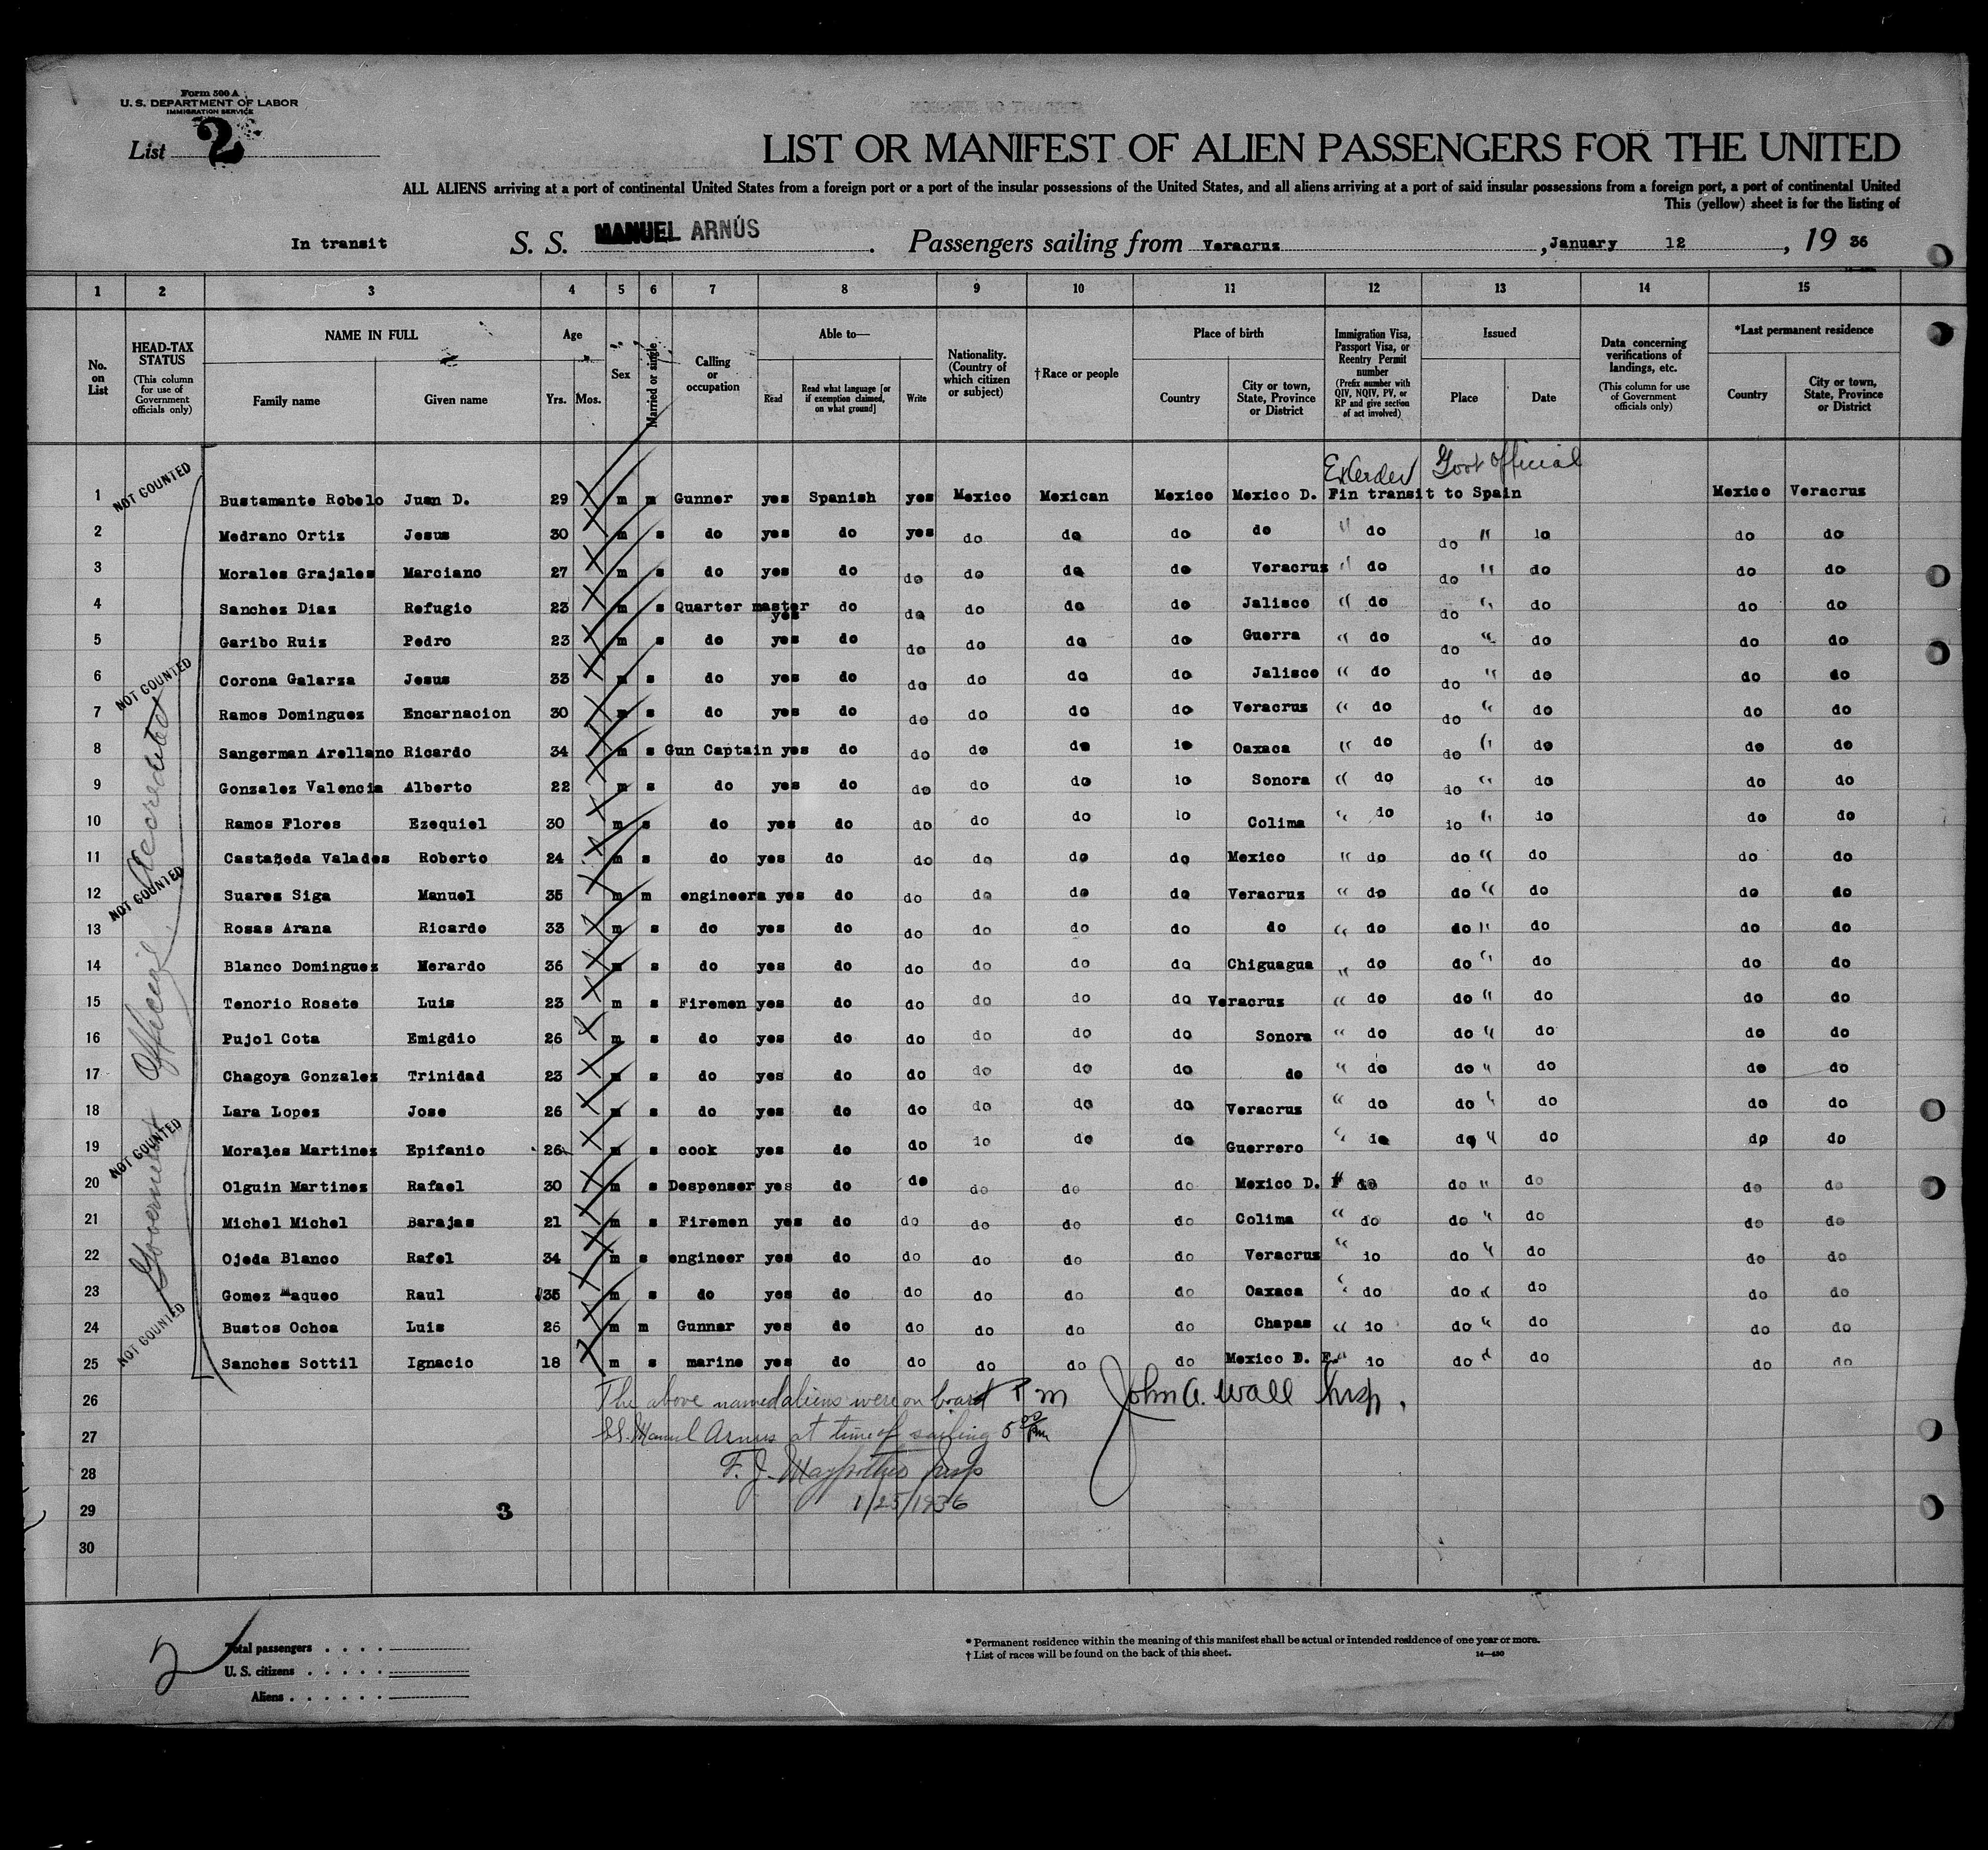 Form 500 A
U. S. DEPARTMENT OF LABOR
IMMIGRATION SERVICE
List 2
LIST OR MANIFEST OF ALIEN PASSENGERS FOR THE UNITED
ALL ALIENS arriving at a port of continental United States from a foreign port or a port of the insular possessions of the United States, and all aliens arriving at a port of said insular possessions from a foreign port, a port of continental United
This (yellow) sheet is for the listing of
In transit S. S. MANUEL ARNÚS. Passengers sailing from Veracruz, January 12, 19 36
1 2 3 4 5 6 7 8 9 10 11 12 13 14 15
No. on List
HEAD-TAX STATUS (This column for use of Government officials only)
NAME IN FULL Family name Given name
Age Yrs. Mos.
Sex
Married or single
Calling or occupation
Able to— Read Read what language [or if exemption claimed, on what ground] Write
Nationality. (Country of which citizen or subject)
†Race or people
Place of birth Country City or town, State, Province or District
Immigration Visa, Passport Visa, or Reentry Permit number (Prefix number with QIV, NQIV, PV, or RP and give section of act involved)
Issued Place Date
Data concerning verifications of landings, etc. (This column for use of Government officials only)
*Last permanent residence Country City or town, State, Province or District
Govt Official
NOT COUNTED
NOT COUNTED
NOT COUNTED
NOT COUNTED
NOT COUNTED
Government Official Accredited
1 Bustamante Robelo Juan D. 29 m m Gunner yes Spanish yes Mexico Mexican Mexico Mexico D. F in transit to Spain Mexico Veracruz
2 Medrano Ortiz Jesus 30 m s do yes do yes do do do do " do do " lo do do
3 Morales Grajales Marciano 27 m s do yes do do do do do Veracruz " do do " do do do
4 Sanchez Diaz Refugio 23 m s Quarter master yes do do do do do Jalisco " do do " do do do
5 Garibo Ruiz Pedro 23 m s do yes do do do do do Guerra " do do " do do do
6 Corona Galarza Jesus 33 m s do yes do do do do do Jalisco " do do " do do do
7 Ramos Dominguez Encarnacion 30 m s do yes do do do do do Veracruz " do do " do do do
8 Sangerman Arellano Ricardo 34 m s Gun Captain yes do do do do lo Oaxaca " do do " do do do
9 Gonzalez Valencia Alberto 22 m s do yes do do do do lo Sonora " do lo " do do do
10 Ramos Flores Ezequiel 30 m s do yes do do do do lo Colima " do lo " lo do do
11 Castañeda Valades Roberto 24 m s do yes do do do do do Mexico " do do " do do do
12 Suarez Siga Manuel 35 m m engineera yes do do do do do Veracruz " do do " do do do
13 Rosas Arana Ricardo 33 m s do yes do do do do do do " do do " do do do
14 Blanco Dominguez Merardo 36 m s do yes do do do do do Chiguagua " do do " do do do
15 Tenorio Rosete Luis 23 m s Firemen yes do do do do do Veracruz " do do " do do do
16 Pujol Cota Emigdio 26 m s do yes do do do do do Sonora " do do " do do do
17 Chagoya Gonzalez Trinidad 23 m s do yes do do do do do do " do do " do do do
18 Lara Lopez Jose 26 m s do yes do do do do do Veracruz " do do " do do do
19 Morales Martinez Epifanio 26 m s cook yes do do lo do do Guerrero " lo do " do do do
20 Olguin Martinez Rafael 30 m s Despenser yes do do do do do Mexico D. F do do " do do do
21 Michel Michel Barajas 21 m s Firemen yes do do do do do Colima " do do " do do do
22 Ojeda Blanco Rafel 34 m s engineer yes do do do do do Veracruz " lo do " do do do
23 Gomez Maqueo Raul 35 m s do yes do do do do do Oaxaca " do do " do do do
24 Bustos Ochoa Luis 26 m m Gunnar yes do do do do do Chapas " lo do " do do do
25 Sanchez Sottil Ignacio 18 m s marine yes do do do do do Mexico D. F. " lo do " do do do
26 The above named aliens were on board P m John A. Wall Insp.
27 SS. Manuel Arnus at time of sailing 5 00 Pm
28 F. J. Insp
29 3 1/25/1936
30
2
Total passengers
U. S. citizens
Aliens
* Permanent residence within the meaning of this manifest shall be actual or intended residence of one year or more.
† List of races will be found on the back of this sheet. 14—430